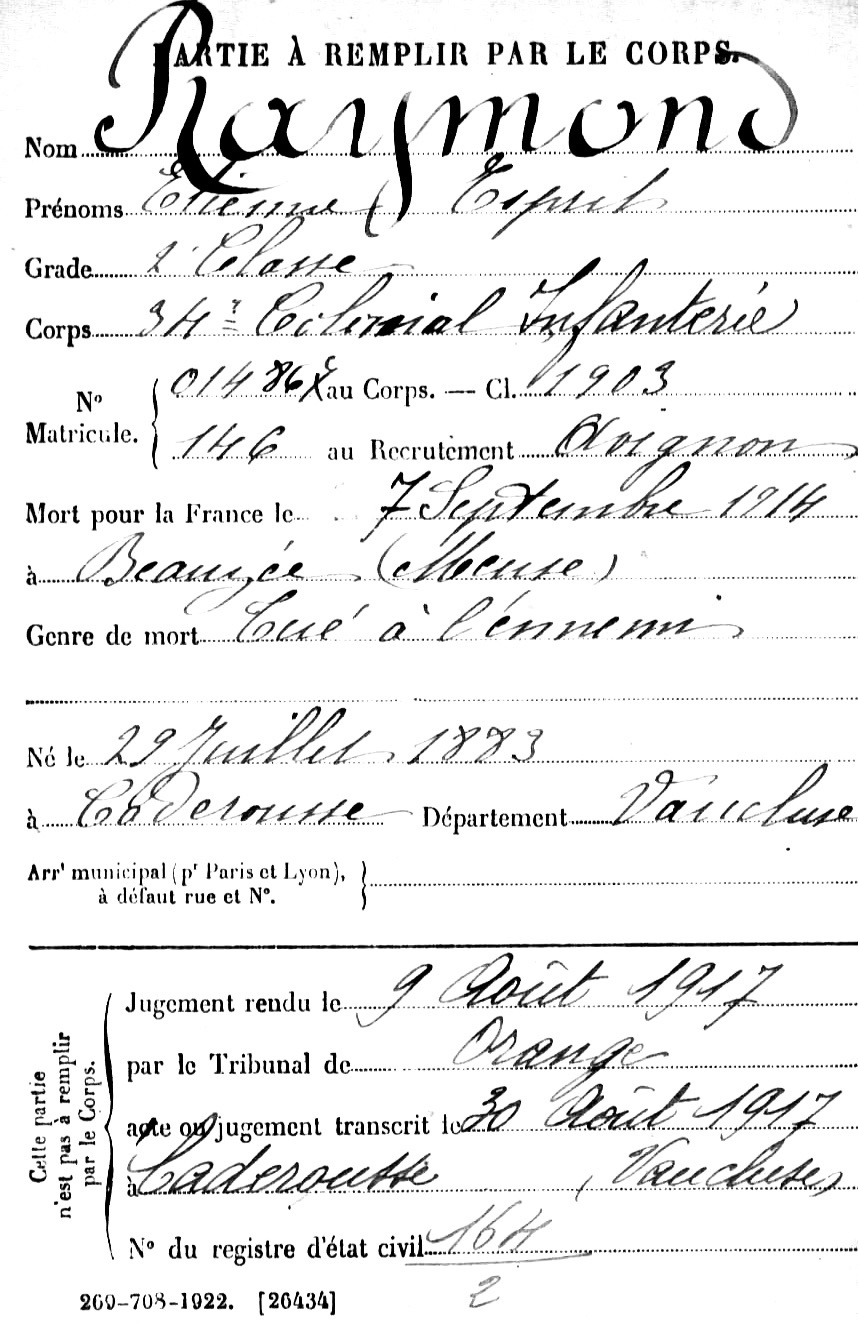 PARTIE À REMPLIR PAR LE CORPS.
Nom Raymond
Prénoms Etienne Esprit
Grade 2e Classe
Corps 34e Colonial Infanterie
No Matricule. 01486 au Corps. — Cl. 1903
146 au Recrutement Avignon
Mort pour la France le 7 Septembre 1914
à Beauzée (Meuse)
Genre de mort Tué à l'énnemi
Né le 29 Juillet 1883
à Caderousse Département Vaucluse
Arrt municipal (pr Paris et Lyon),
à défaut rue et N°.
Cette partie
n'est pas à remplir
par le Corps.
Jugement rendu le 9 Août 1917
par le Tribunal de Orange
acte ou jugement transcrit le 30 Août 1917
à Caderousse (Vaucluse)
N° du registre d'état civil 164
2
269-708-1922. [26434]